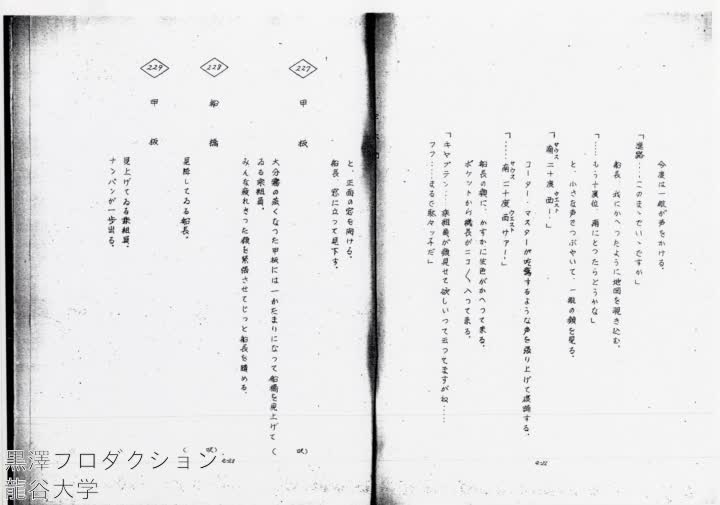 今度は一機が声をかける。
「進路……このまゝでいゝですか」
船長、我にかへったように地図を覗き込む。
「……もう十度位、南にとったらどうかな」
と、小さな声でつぶやいて、一機の顔を見る。
「南二十度西ー」
サウス ウエスト
コーター・マスターが するような声を張り上げて復誦する。
「……南二十度西サァー」
サウス ウエスト
船長の顔に、かすかに生色がかへって来る。
ポケットから 長がニコ〱入って来る。
「キャプテン……乗組員が顔見せて欲しいって云ってますがね……
フフ……まるで駄々ッ子だ」
と、正面の窓を開ける。
船長、窓に立って見下す。
227 甲板
大分霧の薄くなった甲板には一かたまりになって船橋を見上げて
ゐる乗組員。
みんな疲れきった顔を緊張させてじっと船長を瞶める。
228 船橋
見降してゐる船長。
229 甲板
見上げてゐる乗組員。
ナンバンが一歩出る。
黒澤プロダクション
龍谷大学